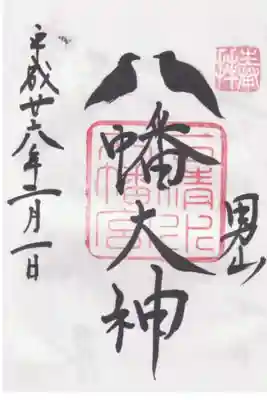 男山
八幡大神
石清水八幡宮
平成廿六年二月一日